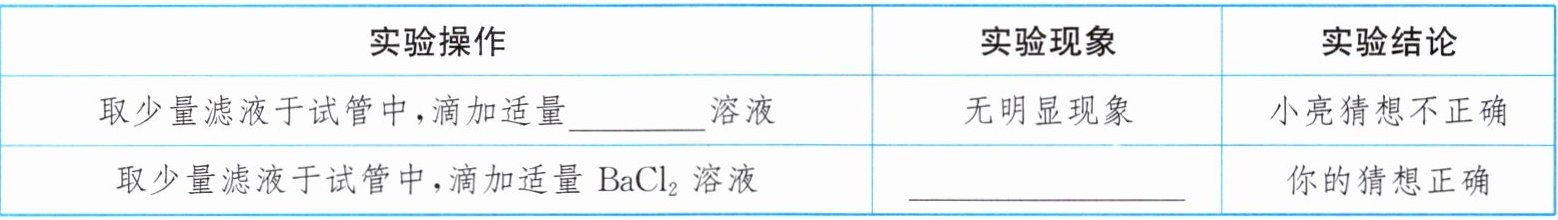 实验操作 实验现象 实验结论
取少量滤液于试管中,滴加适量________溶液 无明显现象 小亮猜想不正确
取少量滤液于试管中,滴加适量 BaCl₂ 溶液 ________________ 你的猜想正确